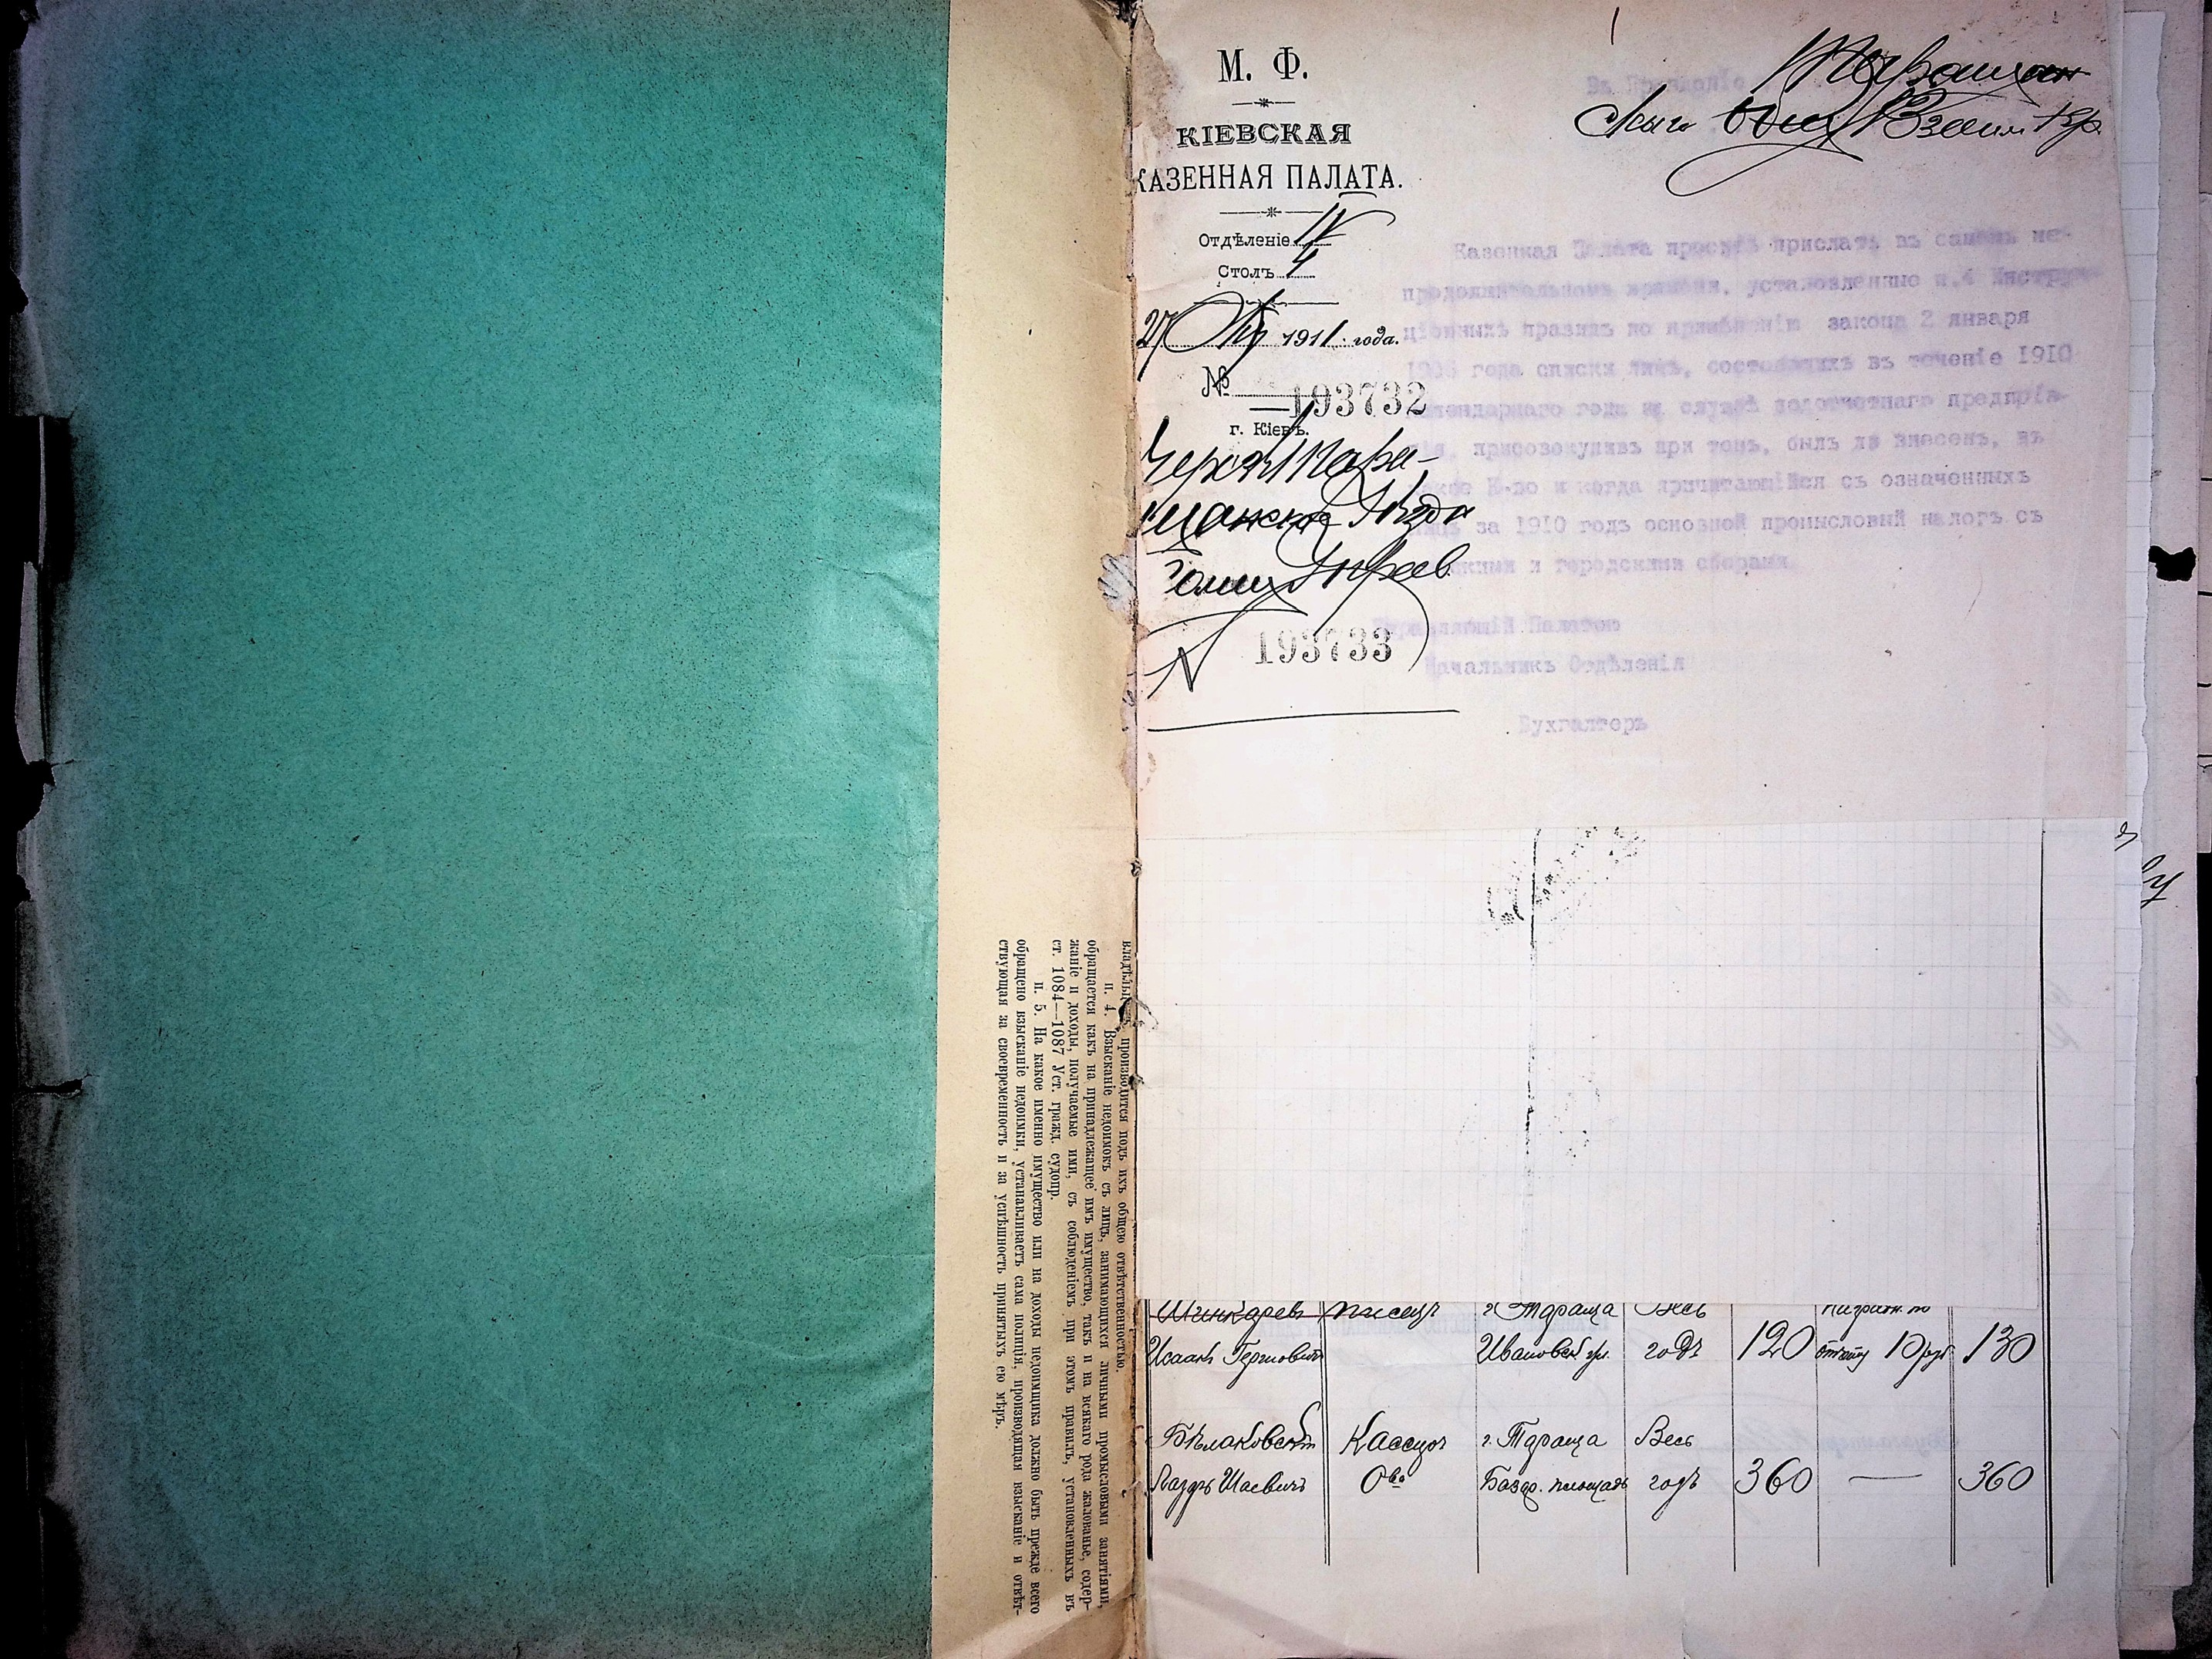 М. Ф.
КІЕВСКАЯ
КАЗЕННАЯ ПАЛАТА.
Отдѣленіе IV
Столъ 4
27 1911 года.
№ 193732
г. Кіевъ.
193733
Въ Правленіе
Общ Взаим Кр.
Казенная Палата проситъ прислать въ самомъ не-
продолжительномъ времени, установленные п.4 Инструк
ціонныхъ правилъ по примѣненію закона 2 января
года списки лицъ, состоявшихъ въ теченіе 1910
календарнаго года на службѣ подотчетнаго предпрія-
тія, присовокупивъ при томъ, былъ ли внесенъ, въ
какое К-во и когда причитающійся съ означенныхъ
лицъ за 1910 годъ основной промысловый налогъ съ
и городскими сборами.
Управляющій Палатою
Начальникъ Отдѣленія
Бухгалтеръ
производится подъ ихъ общею отвѣтственностью.
п. 4. Взысканіе недоимокъ съ лицъ, занимающихся личными промысловыми занятіями,
обращается какъ на принадлежащее имъ имущество, такъ и на всякаго рода жалованье, содер-
жаніе и доходы, получаемые ими, съ соблюденіемъ при этомъ правилъ, установленныхъ въ
ст. 1084—1087 Уст. гражд. судопр.
п. 5. На какое именно имущество или на доходы недоимщика должно быть прежде всего
обращено взысканіе недоимки, устанавливаетъ сама полиція, производящая взысканіе и отвѣт-
ствующая за своевременность и за успѣшность принятыхъ ею мѣръ.
Шинкаревъ писецъ г. Тараща Весь
Исаакъ годъ 120 10 руб 130
Бѣлаковскій Кассиръ г. Тараща Весь
Лазарь Шаевичъ О-ва Базар. площадь годъ 360 — 360